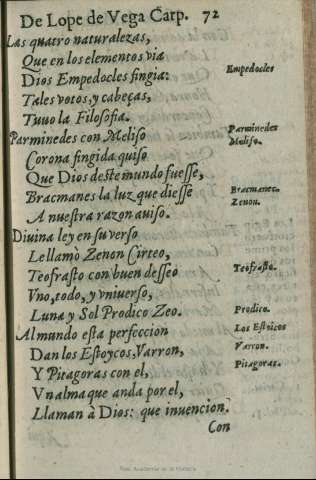 De Lope de Vega Carp. 72
Las quatro naturalezas,
Que en los elementos via
Dios Empedocles fingia:
Empedocles
Tales votos, y cabeças,
Tuuo la Filosofia.
Parminedes con Meliso
Parminedes
Corona fingida quiso
Meliso.
Que Dios deste mundo fuesse,
Bracmanes la luz que diesse
Bracmanes.
A nuestra razon auiso.
Zenon.
Diuina ley en su verso
Le llamò Zenon Cirteo,
Teofrasto con buen desseo
Teofrasto.
Vno, todo, y vniuerso,
Luna y Sol Prodico Zeo.
Prodico.
Al mundo esta perfeccion
Los Estoicos
Dan los Estoycos, Varron,
Varron.
Y Pitagoras con el,
Pitagoras.
Vn alma que anda por el,
Llaman à Dios: que inuencion?
Con
Real Academia de la Historia